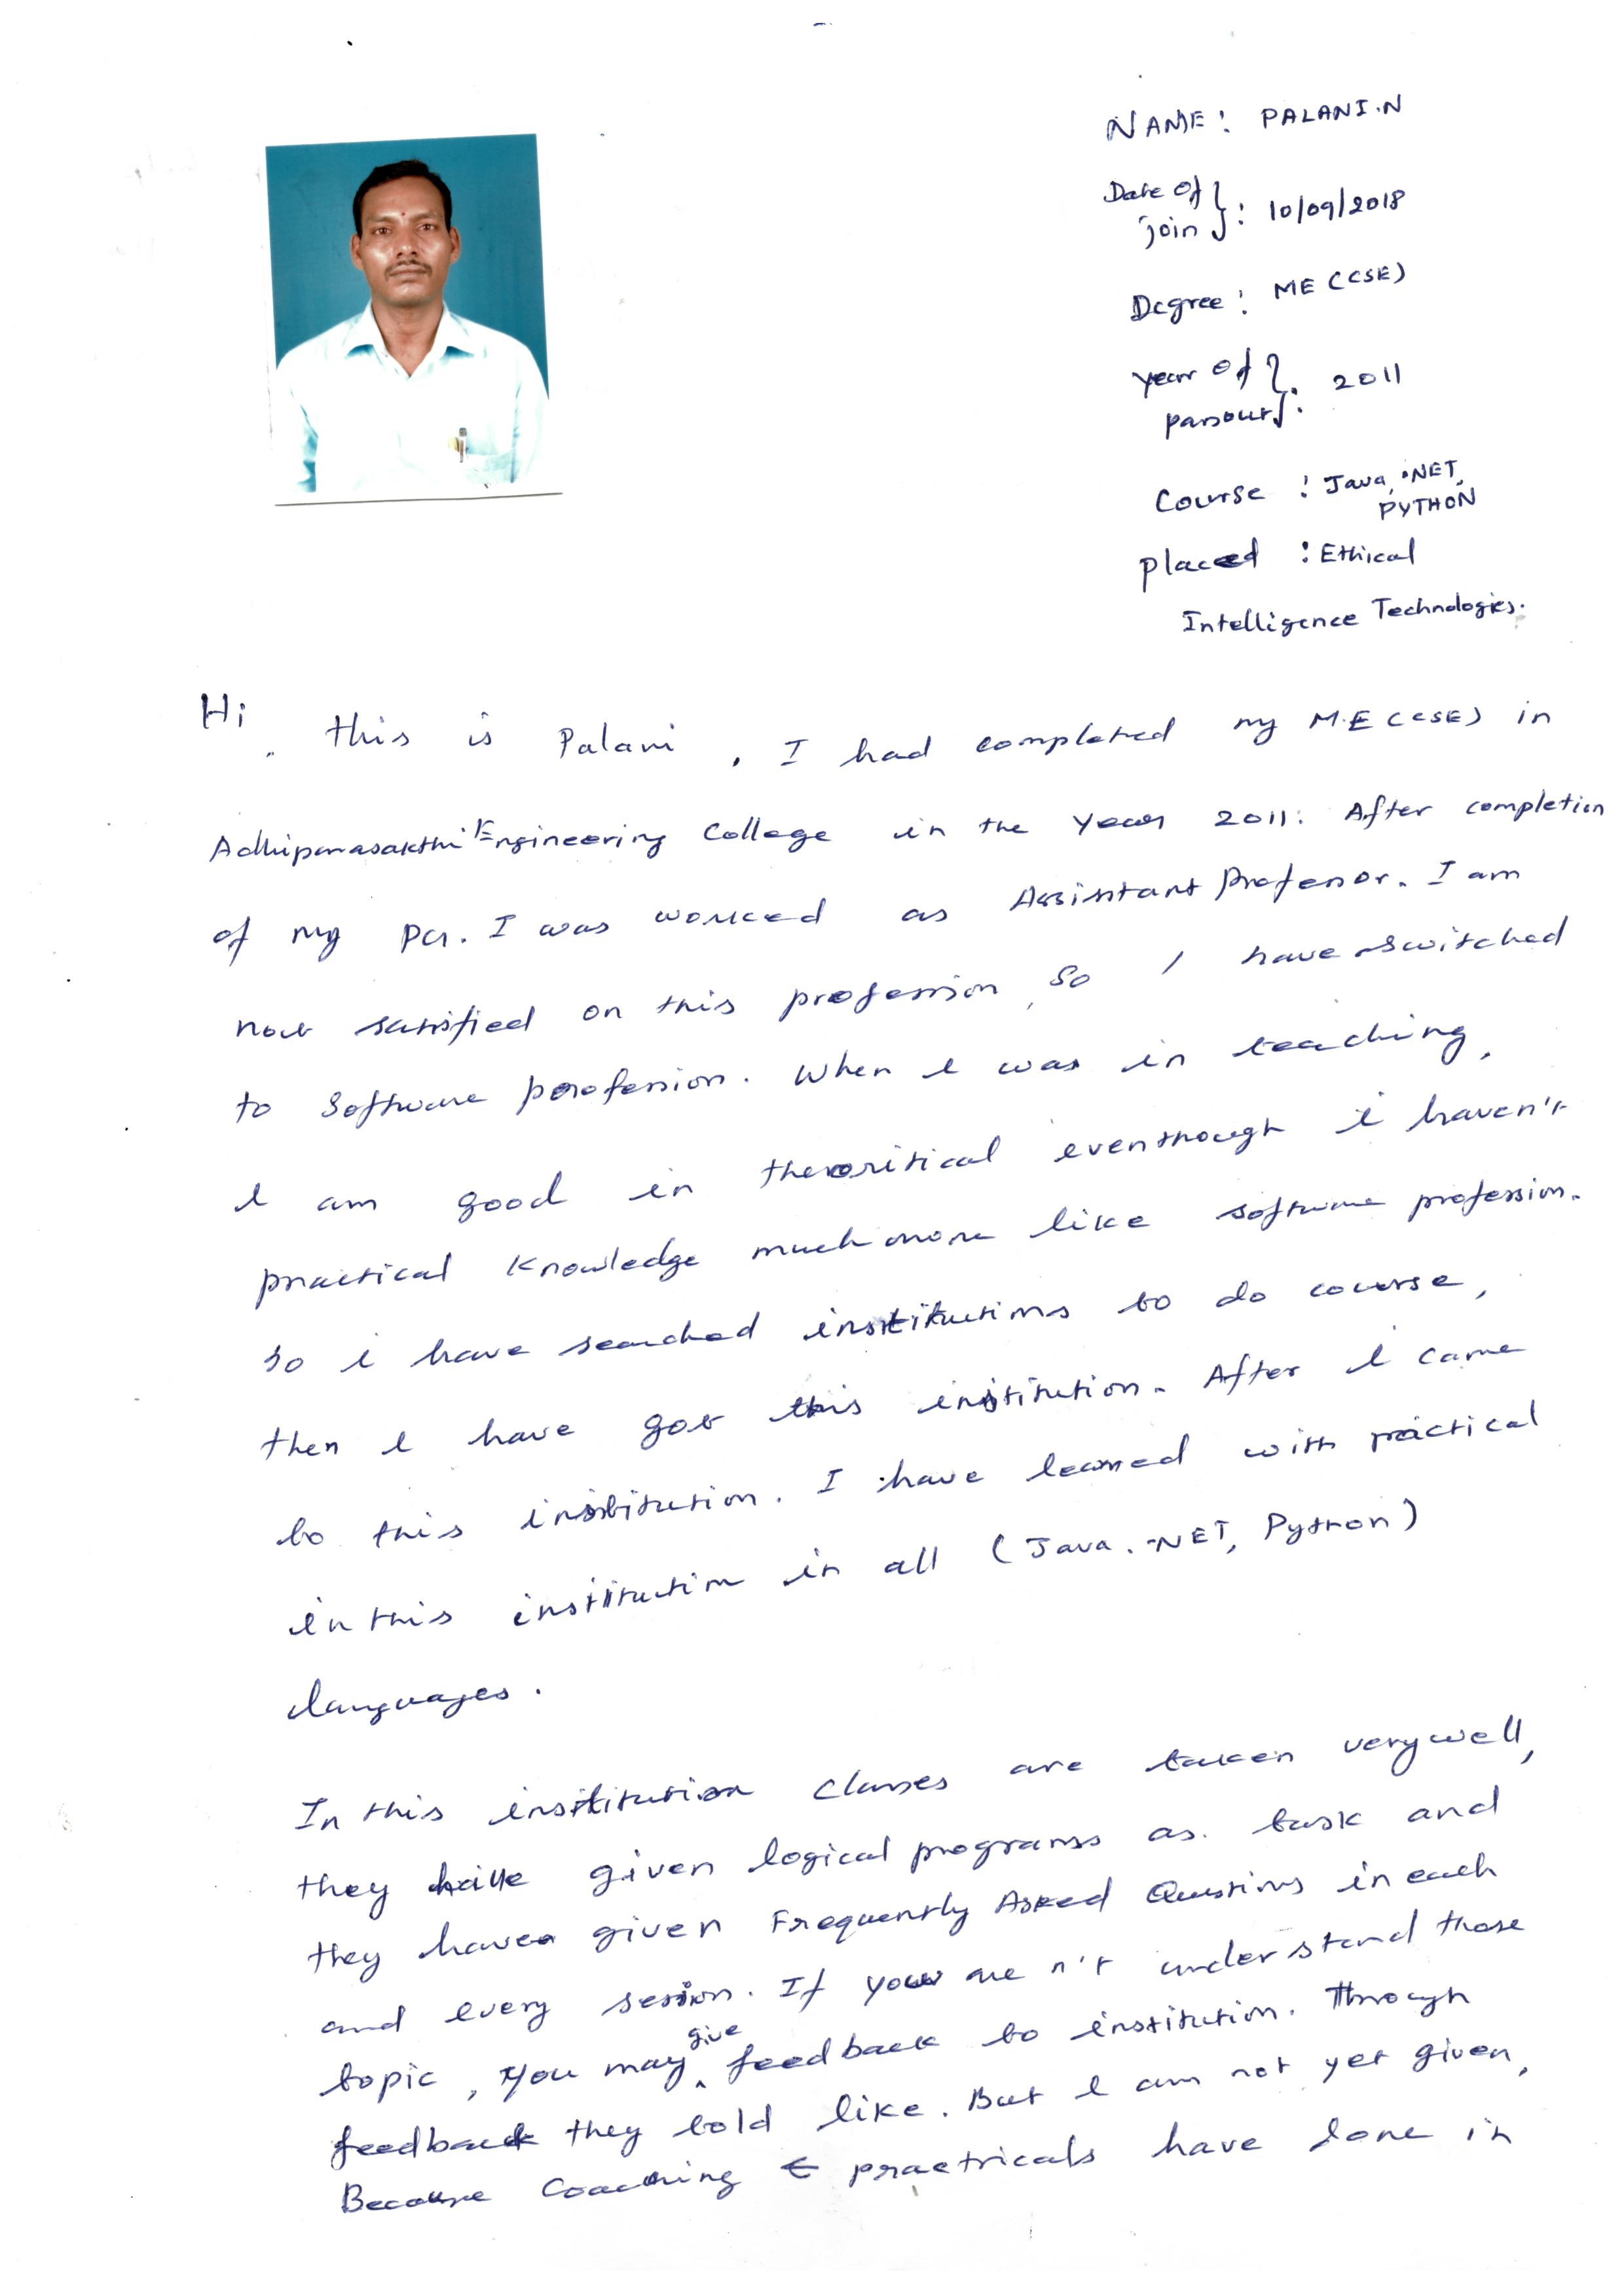 NAME : PALANI.N
Date of
join } : 10/09/2018
Degree : ME (CSE)
Year of
passout } : 2011
Course : Java, .NET,
PYTHON
Placed : Ethical
Intelligence Technologies.
Hi, this is Palani, I had completed my M.E (CSE) in
Adhiparasakthi Engineering College in the Year 2011. After completion
of my PG. I was worked as Assistant Professor. I am
not satisfied on this profession, So I have switched
to Software profession. When I was in teaching,
I am good in theoritical eventhough i haven't
practical Knowledge much more like software profession.
So i have searched institutions to do course,
then I have got this institution. After I came
to this institution. I have learned with practical
in this institution in all (Java, .NET, Python)
languages.
In this institution classes are taken very well,
they have given logical programs as task and
they have given Frequently Asked Questions in each
and every session. If you are n't understand those
topic, you may give feedback to institution. Through
feedback they told like. But I am not yet given,
Because Coaching & practricals have done in